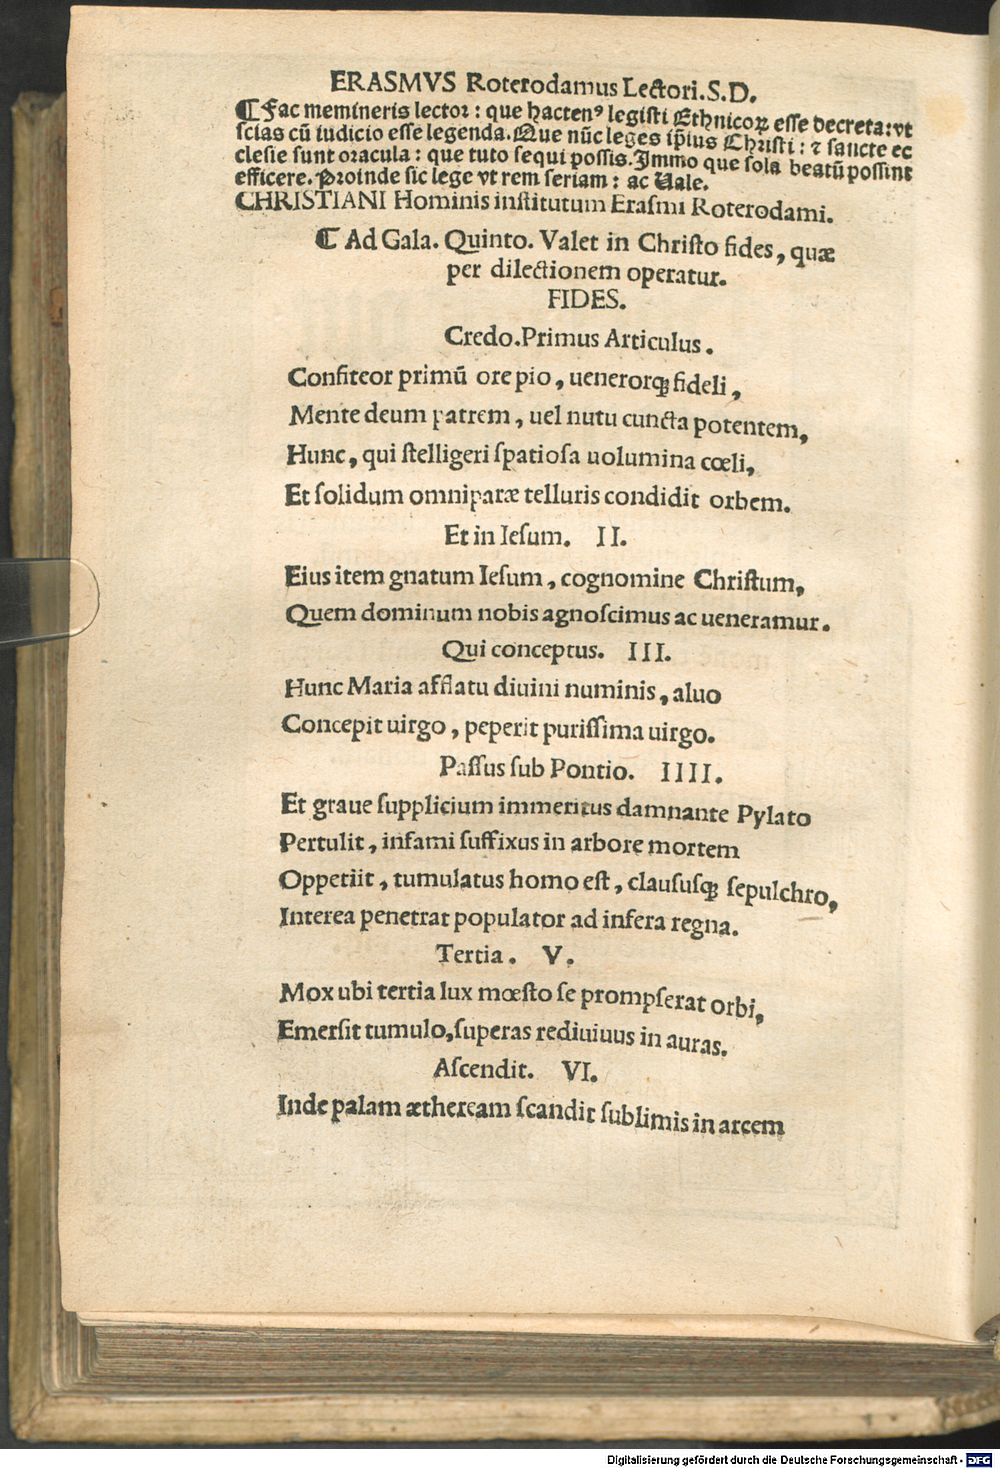 ERASMVS Roterodamus Lectori.S.D.
⁋Fac memineris lector: que hacten⁹ legisti Ethnicoꝝ esse decreta: vt
scias cū iudicio esse legenda. Que nūc leges ip̄ius Christi: ⁊ sancte ec
clesie sunt oracula: que tuto sequi possis. Immo que sola beatū possint
efficere. Proinde sic lege vt rem seriam: ac Uale.
CHRISTIANI Hominis institutum Erasmi Roterodami.
⁋ Ad Gala. Quinto. Valet in Christo fides, quæ
per dilectionem operatur.
FIDES.
Credo. Primus Articulus.
Confiteor primū ore pio, uenerorqꝫ fideli,
Mente deum patrem, uel nutu cuncta potentem,
Hunc, qui stelligeri spatiosa uolumina cœli,
Et solidum omniparæ telluris condidit orbem.
Et in Iesum. II.
Eius item gnatum Iesum, cognomine Christum,
Quem dominum nobis agnoscimus ac ueneramur.
Qui conceptus. III.
Hunc Maria afflatu diuini numinis, aluo
Concepit uirgo, peperit purissima uirgo.
Passus sub Pontio. IIII.
Et graue supplicium immeritus damnante Pylato
Pertulit, infami suffixus in arbore mortem
Oppetiit, tumulatus homo est, claususqꝫ sepulchro,
Interea penetrat populator ad infera regna.
Tertia. V.
Mox ubi tertia lux mœsto se prompserat orbi,
Emersit tumulo, superas rediuiuus in auras.
Ascendit. VI.
Inde palam ætheream scandit sublimis in arcem
Digitalisierung gefördert durch die Deutsche Forschungsgemeinschaft - DFG